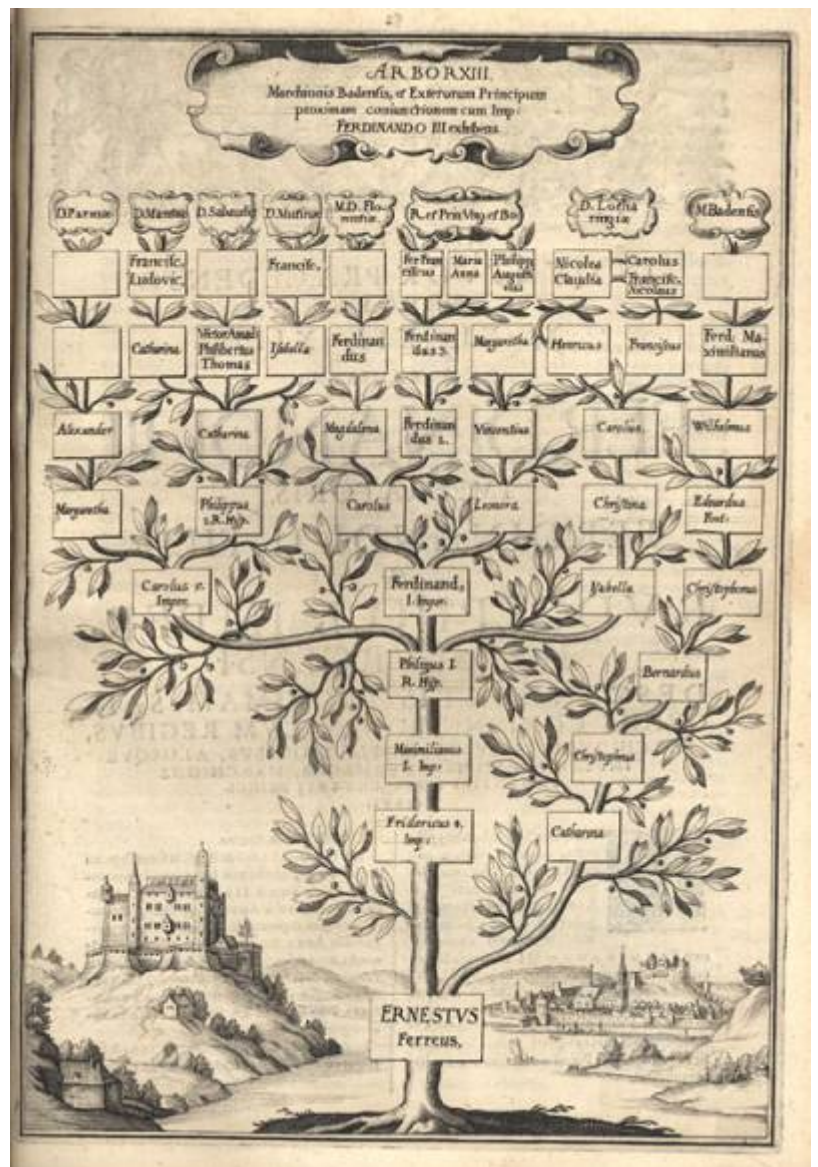 ARBOR XIII.
Marchionis Badensis, et Exterorum Principum
proximam coniunctionem cum Imp:
FERDINANDO III exhibens.
D. Parmæ
D. Mantuæ
D. Sabaudiæ
D. Mutinæ
M. D. Flo-
rentiæ
R. et Prin
D. Lotha
ringiæ
M. Badensis
Francisc.
Ludovic.
Francisc.
Fer Fran
ciscus
Maria
Anna
Philipp
August
Nicolea
Claudia
Carolus
Francisc.
Nicolaus
Catharina
Victor Amad
Philibertus
Thomas
Isabella
Ferdinan
dus
Ferdinan
dus 3.
Margaretha
Henricus
Franciscus
Ferd: Ma-
ximilianus
Alexander
Catharina
Magdalena
Ferdinan
dus 2.
Vincentius
Carolus.
Wilhelmus
Margaretha
Philippus
2. R. Hisp.
Carolus
Leonora
Christina
Eduardus
Fort:
Carolus v.
Imper.
Ferdinand,
I. Imper.
Isabella
Christophorus
Philippus I.
R. Hisp.
Bernardus
Maximilianus
I. Imp:
Christophorus
Fridericus
Imp:
Catharina
ERNESTVS
Ferreus,